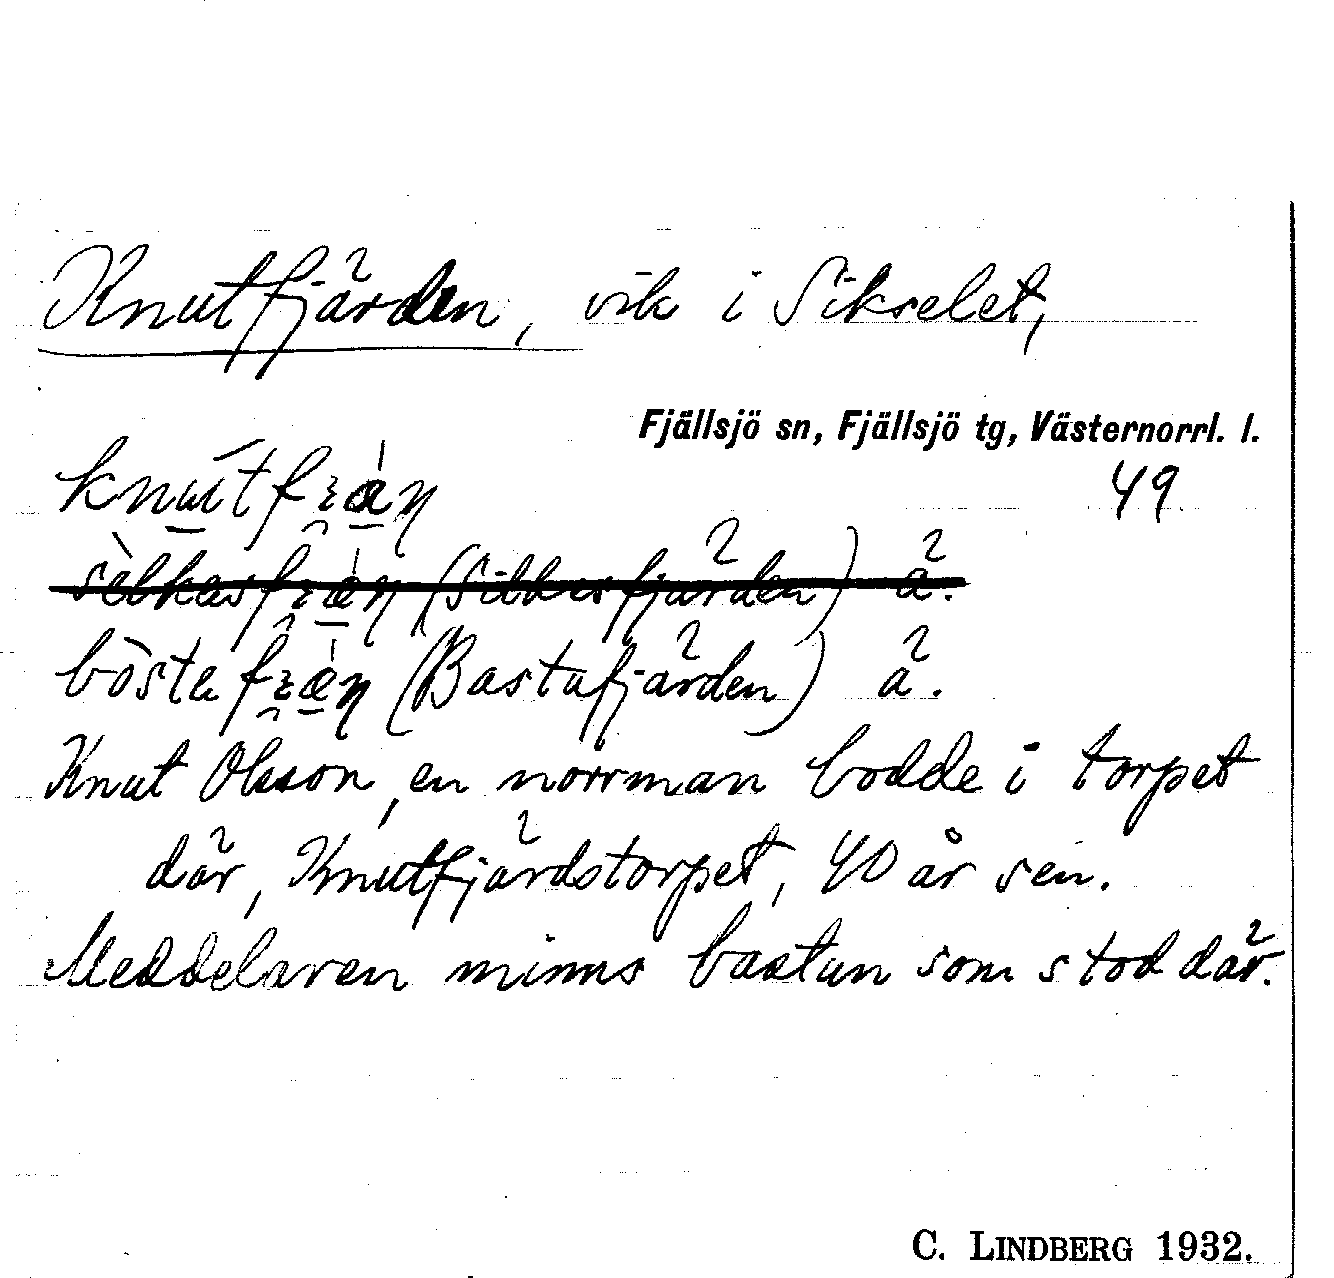 Knutfjärden, vik i Sikselet,
Fjällsjö sn, Fjällsjö tg, Västernorrl. l.
49
(Silkesfjärden) ä.
(Bastafjärden) ä.
Knut Olsson, en norrman bodde i torpet
där, Knutfjärdstorpet, 40 år sen.
Meddelaren minns bastun som stod där.
C. LINDBERG 1932.